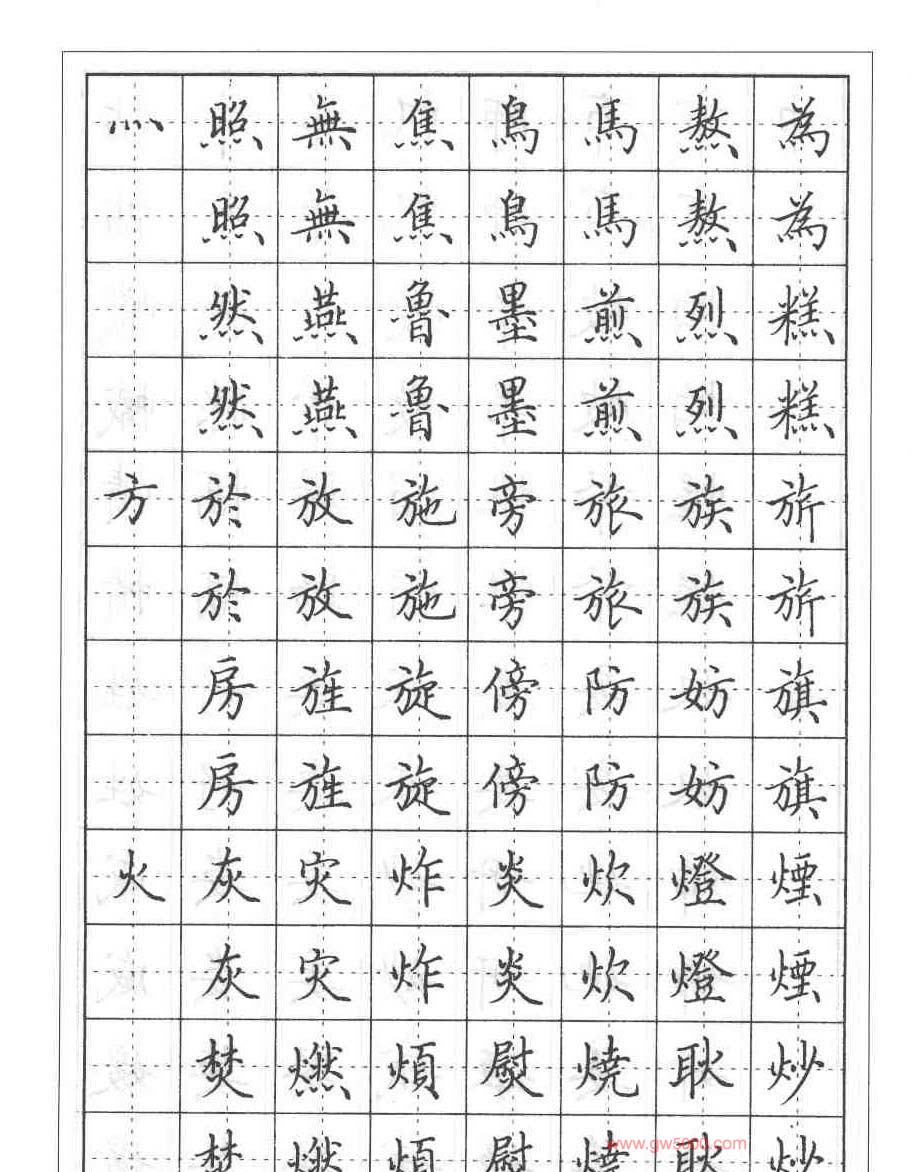 灬照無焦鳥馬熬為
照無焦鳥馬熬為
然燕魯墨煎烈糕
然燕魯墨煎烈糕
方於放施旁旅族旂
於放施旁旅族旂
房旌旋傍防妨旗
房旌旋傍防妨旗
火灰灾炸炎炊燈煙
灰灾炸炎炊燈煙
焚燃煩熨燒耿炒
焚燃煩熨燒耿炒
www.gw5000.com